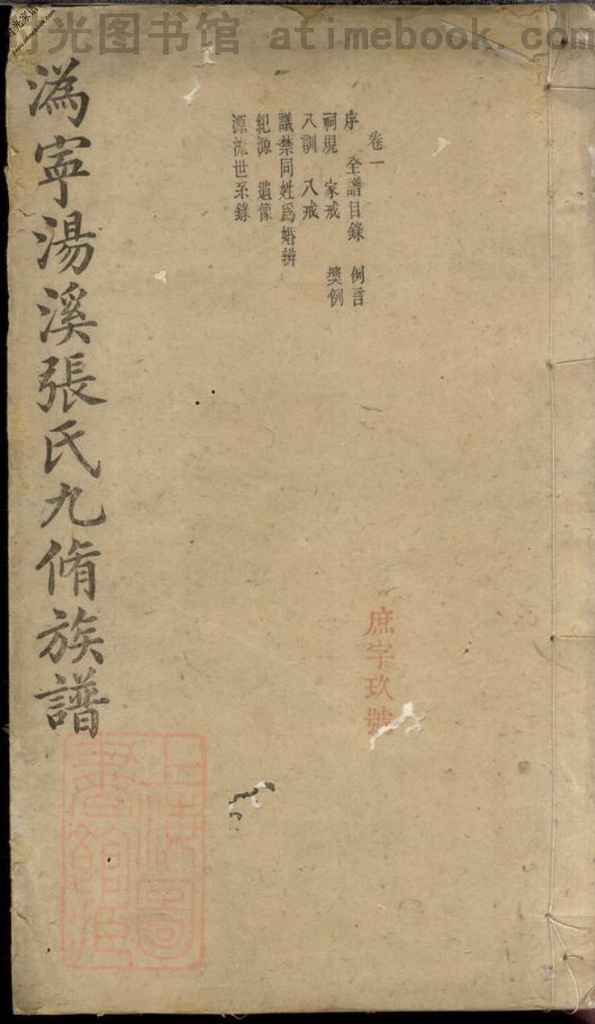 时光图书馆 atimebook.com
卷一
序 全譜目錄 例言
祠規 家戒 獎例
八訓 八戒
議禁同姓爲婚辨
紀源 遺像
源流世系錄
溈寧湯溪張氏九脩族譜
庶字玖號
上海圖書館藏